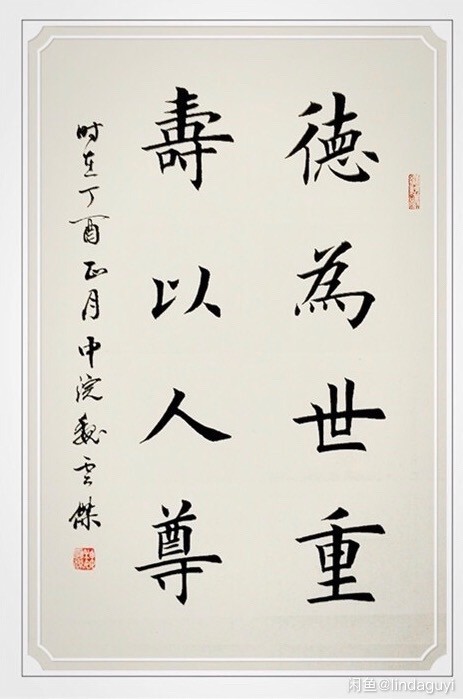 德為世重
壽以人尊
时在丁酉正月中浣魏雲傑
闲鱼@lindaguyi